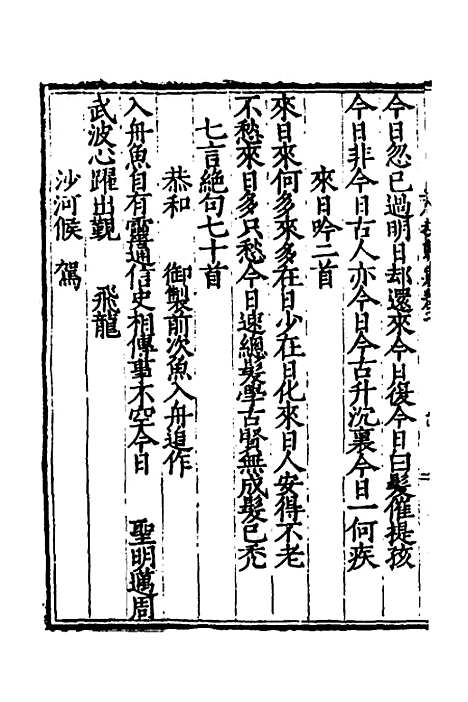 今日忽已過明日却還來今日復今日白髮催提孩
今日非今日古人亦今日今古升沉裏今日一何疾
來日吟二首
來日來何多來多在日少在日化來日人安得不老
不愁來日多只愁今日速總髮學古賢無成髮已禿
七言絶句七十首
恭和　御製前次魚入舟追作
入舟魚自有靈通信史相傳事不空今日　聖明邁周
武波心躍出覲　飛龍
沙河候　駕